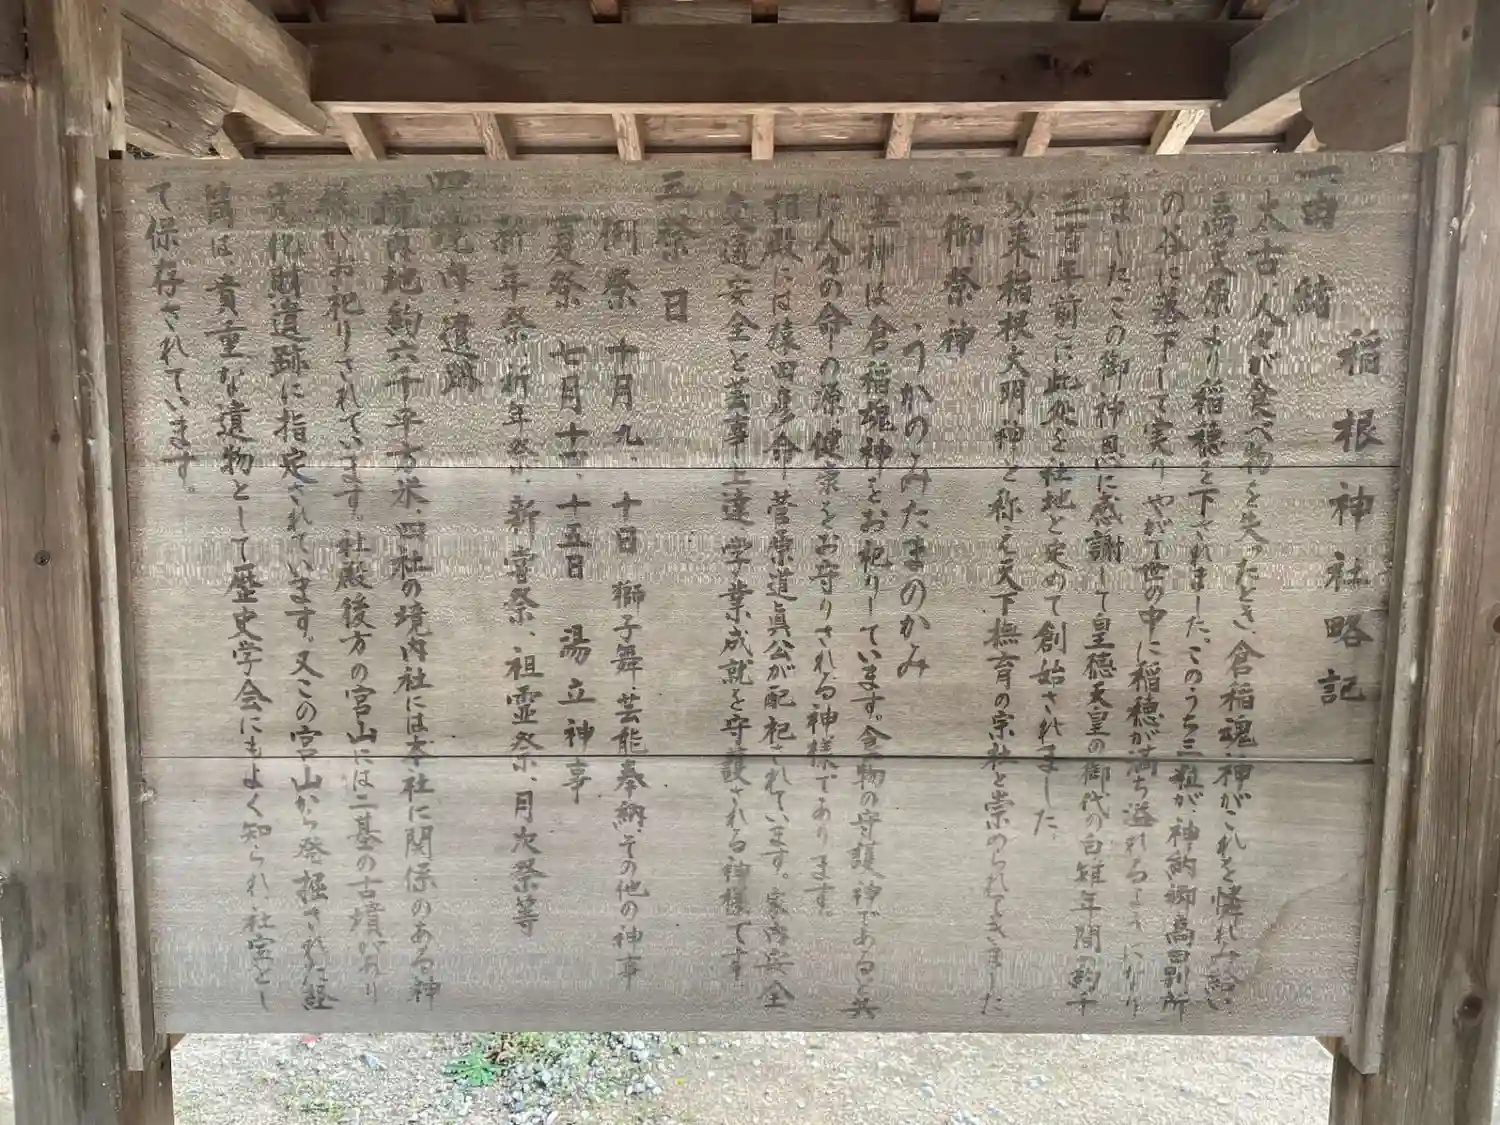 稲根神社略記
一由緒
太古、人々が食べ物を失ったとき、倉稲魂神がこれを憐れみ給い
高天原より稲穂を下されました。このうち三粒が、神納御高田別所
の谷に落下して実り、やがて世の中に稲穂が満ち溢れるようになり
ました。この御神恩に感謝して皇徳天皇の御代の白雉年間(約千
三百年前)に此処を社地と定めて創始されました。
以来稲根大明神と称え天下撫育の宗社と崇められてきました
二御祭神
うかのみたまのかみ
主神は倉稲魂神をお祀りしています。食物の守護神であると共
に人々の命の源、健康をお守りされる神様であります。
相殿には猿田彦命、菅原道眞公が配祀されています。家内安全
交通安全と芸事上達、学業成就を守護される神様です
三祭日
例祭 十月九、十日 獅子舞、芸能奉納、その他の神事
夏祭 七月十四、十五日 湯立神事
新年祭、祈年祭、新嘗祭、祖霊祭、月次祭等
四境内、遺跡
境内地約六千平方米、四社の境内社には本社に関係のある神
様がお祀りされています。社殿後方の宮山には二基の古墳があり
文化財遺跡に指定されています。又この宮山から発掘された経
筒は貴重な遺物として歴史学会にもよく知られ、社宝とし
て保存されています。